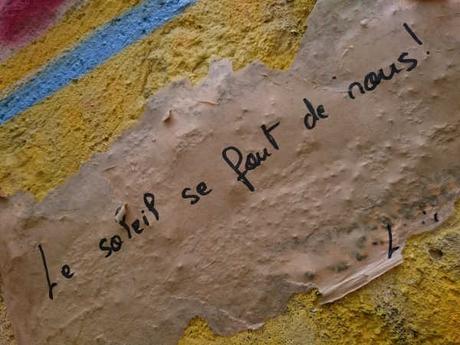 Le soleil se fout de nous!
L